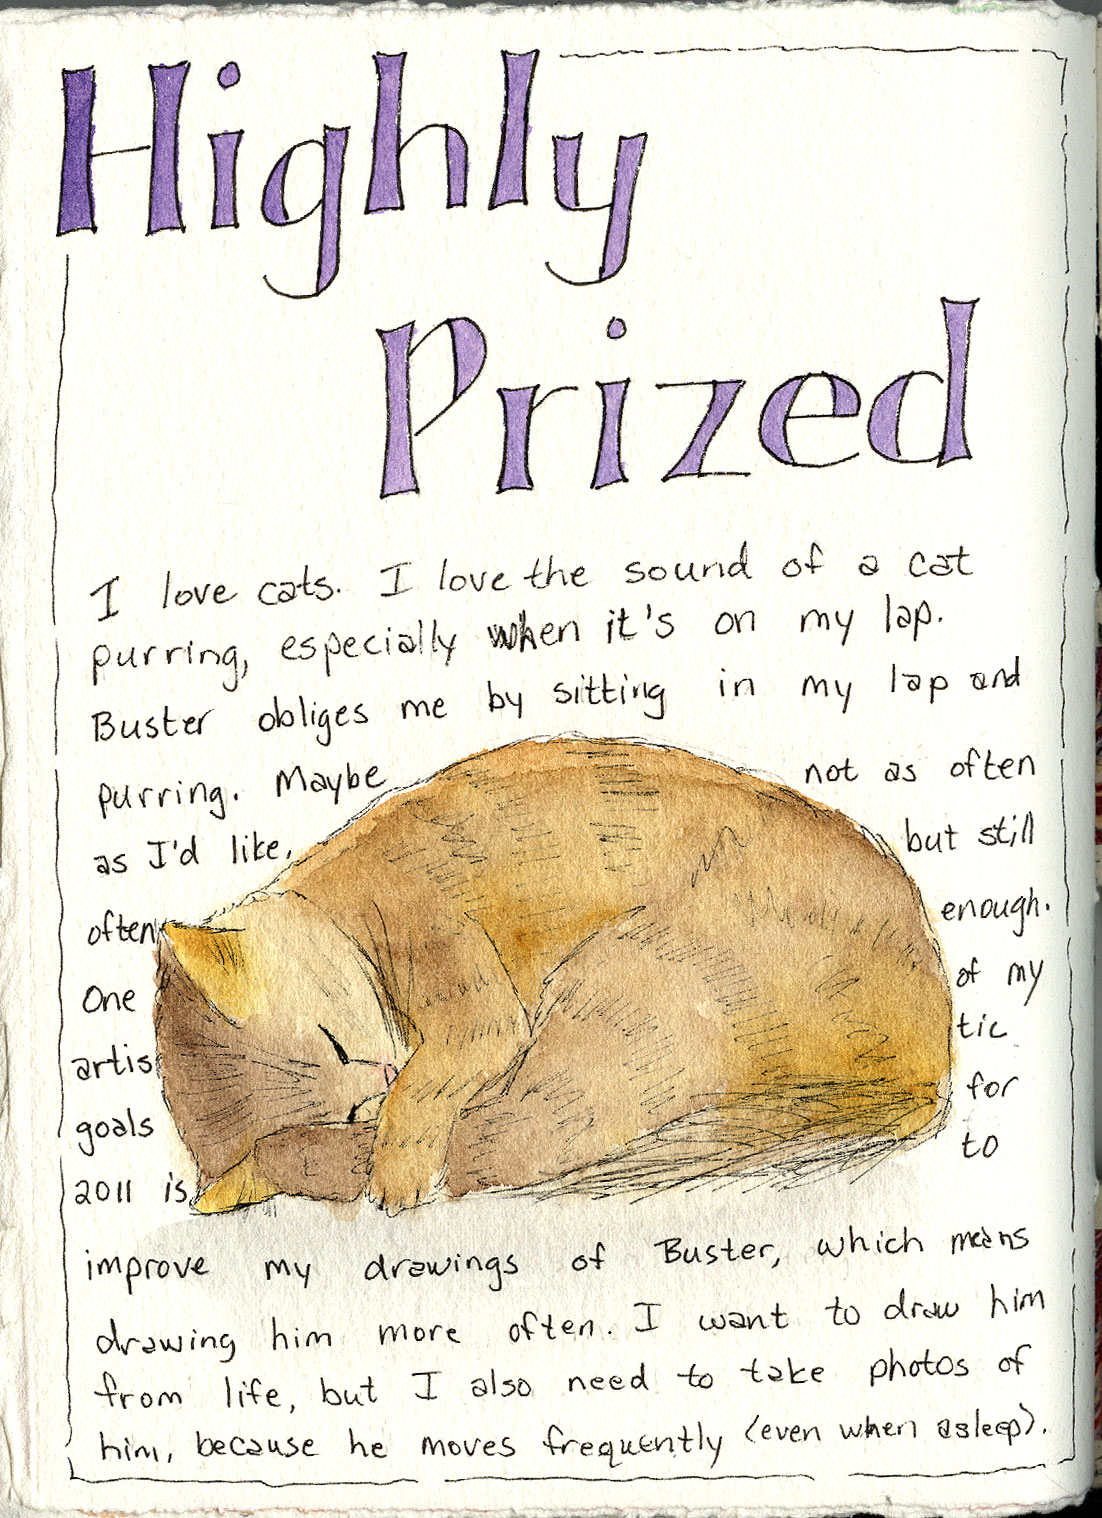 Highly
Prized
I love cats. I love the sound of a cat
purring, especially when it's on my lap.
Buster obliges me by sitting in my lap and
purring. Maybe not as often
as I'd like, but still
often enough.
One of my
artis tic
goals for
2011 is to
improve my drawings of Buster, which means
drawing him more often. I want to draw him
from life, but I also need to take photos of
him, because he moves frequently (even when asleep).